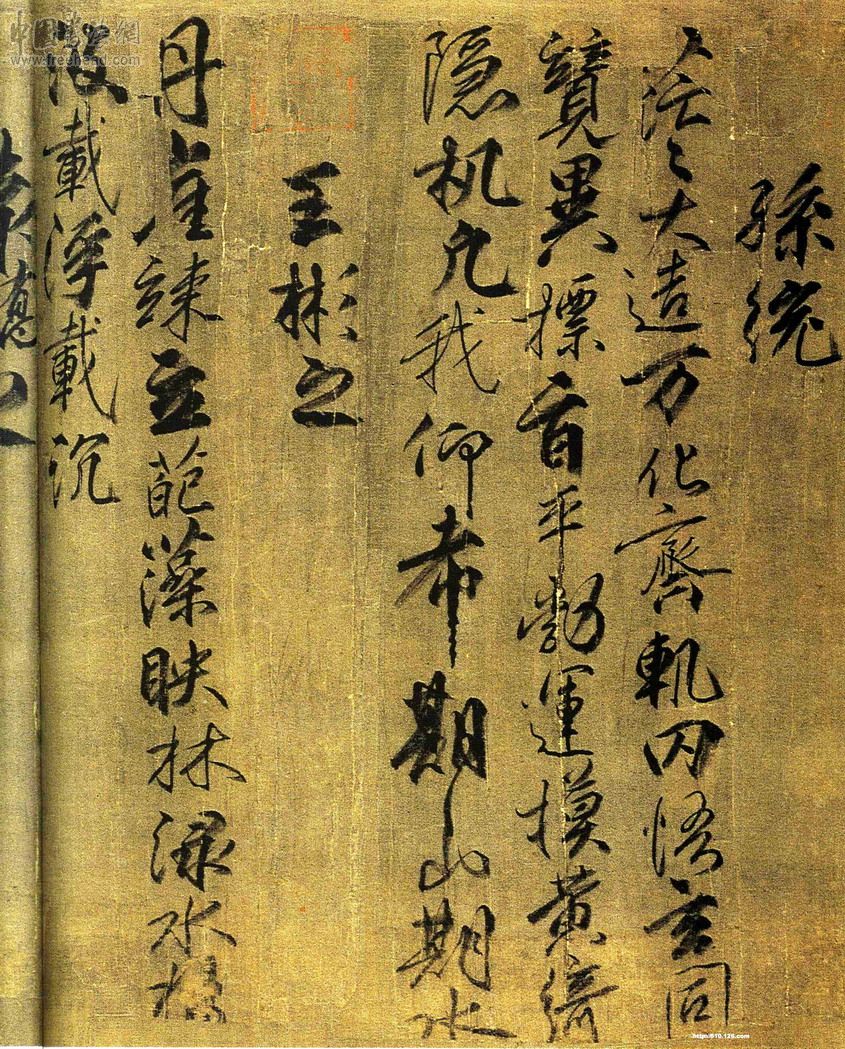 孫統
茫〻大造万化齊軌罔悟玄同
競異摽旨平勃運摸黄綺
隱机凢我仰希期山期水
王彬之
丹崖竦立葩藻映林渌水揚
波載浮載沉
之
中国书法網
www.freehead.com
http://610.126.com